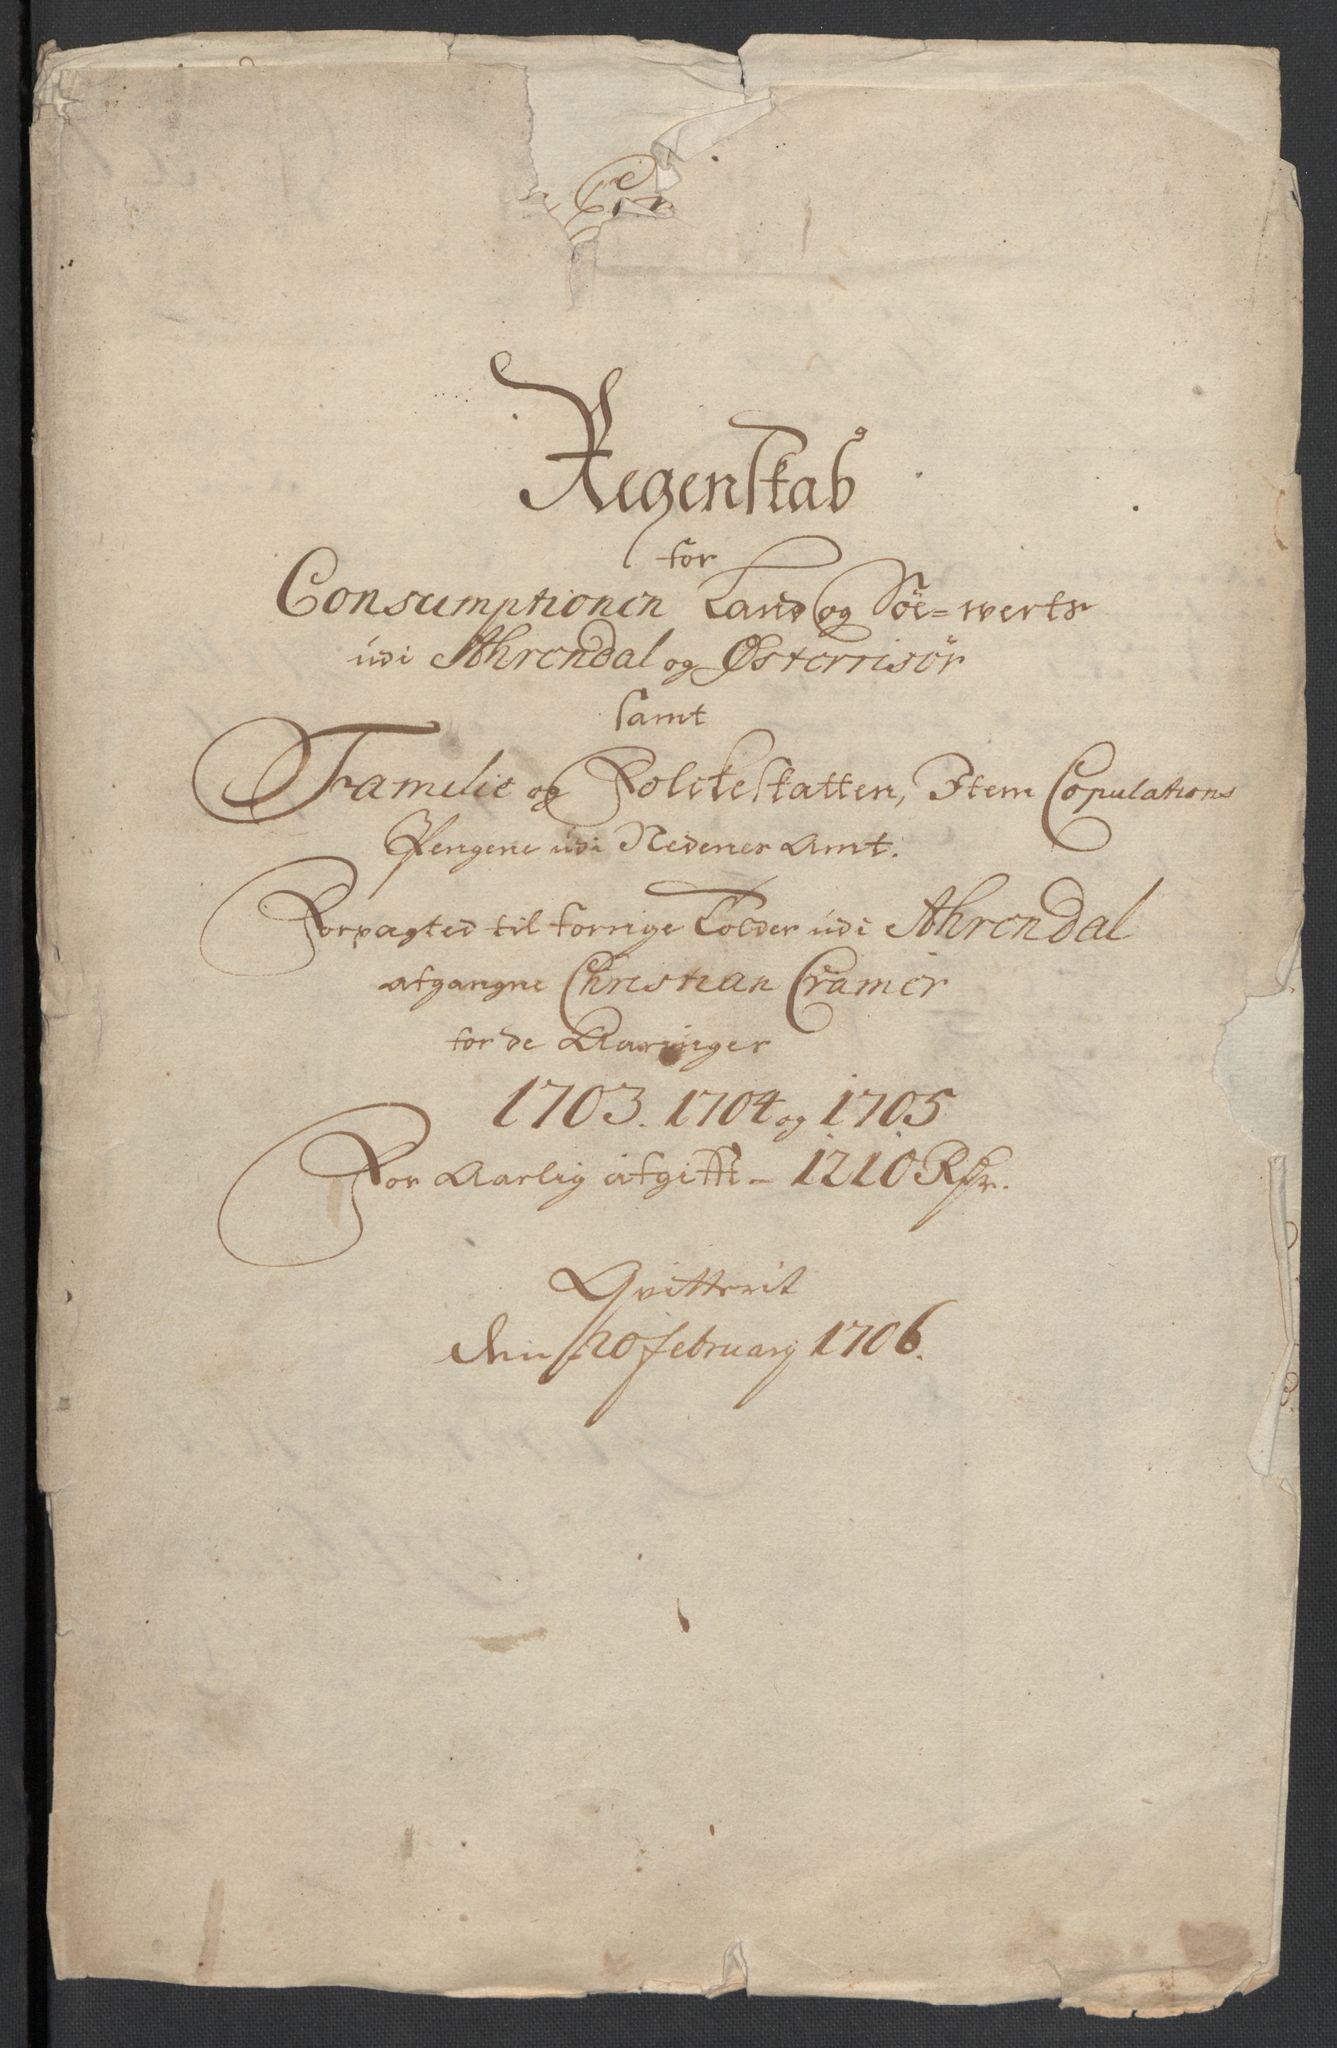 Regenskab
for
Consumptionen Land og Söe=werts
udi Ahrendal og Østerrisör
samt
Familie og Folckeskatten, Item Copulations
Pengene udi Nedenes Amt.
Forpagted til forrige Tolder udi Ahrendal
afgangne Christian Cramer
for de Aaringer
1703. 1704 og 1705
For Aarlig afgifft - 1210 Rdr.
Qvitterit
den 20 februarij 1706.